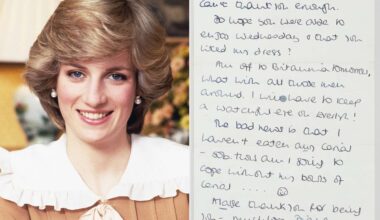 can't thank you enough.
I do hope you were able to
enjoy Wednesday & that you
liked my dress!
I'm off to Britannia tomorrow,
what with all those men
around. I will have to keep
a watchful eye on everyone!
The bad news is that I
haven't eaten any cereal
how am I going to
cope without my bowls of
cereal
thank you for being